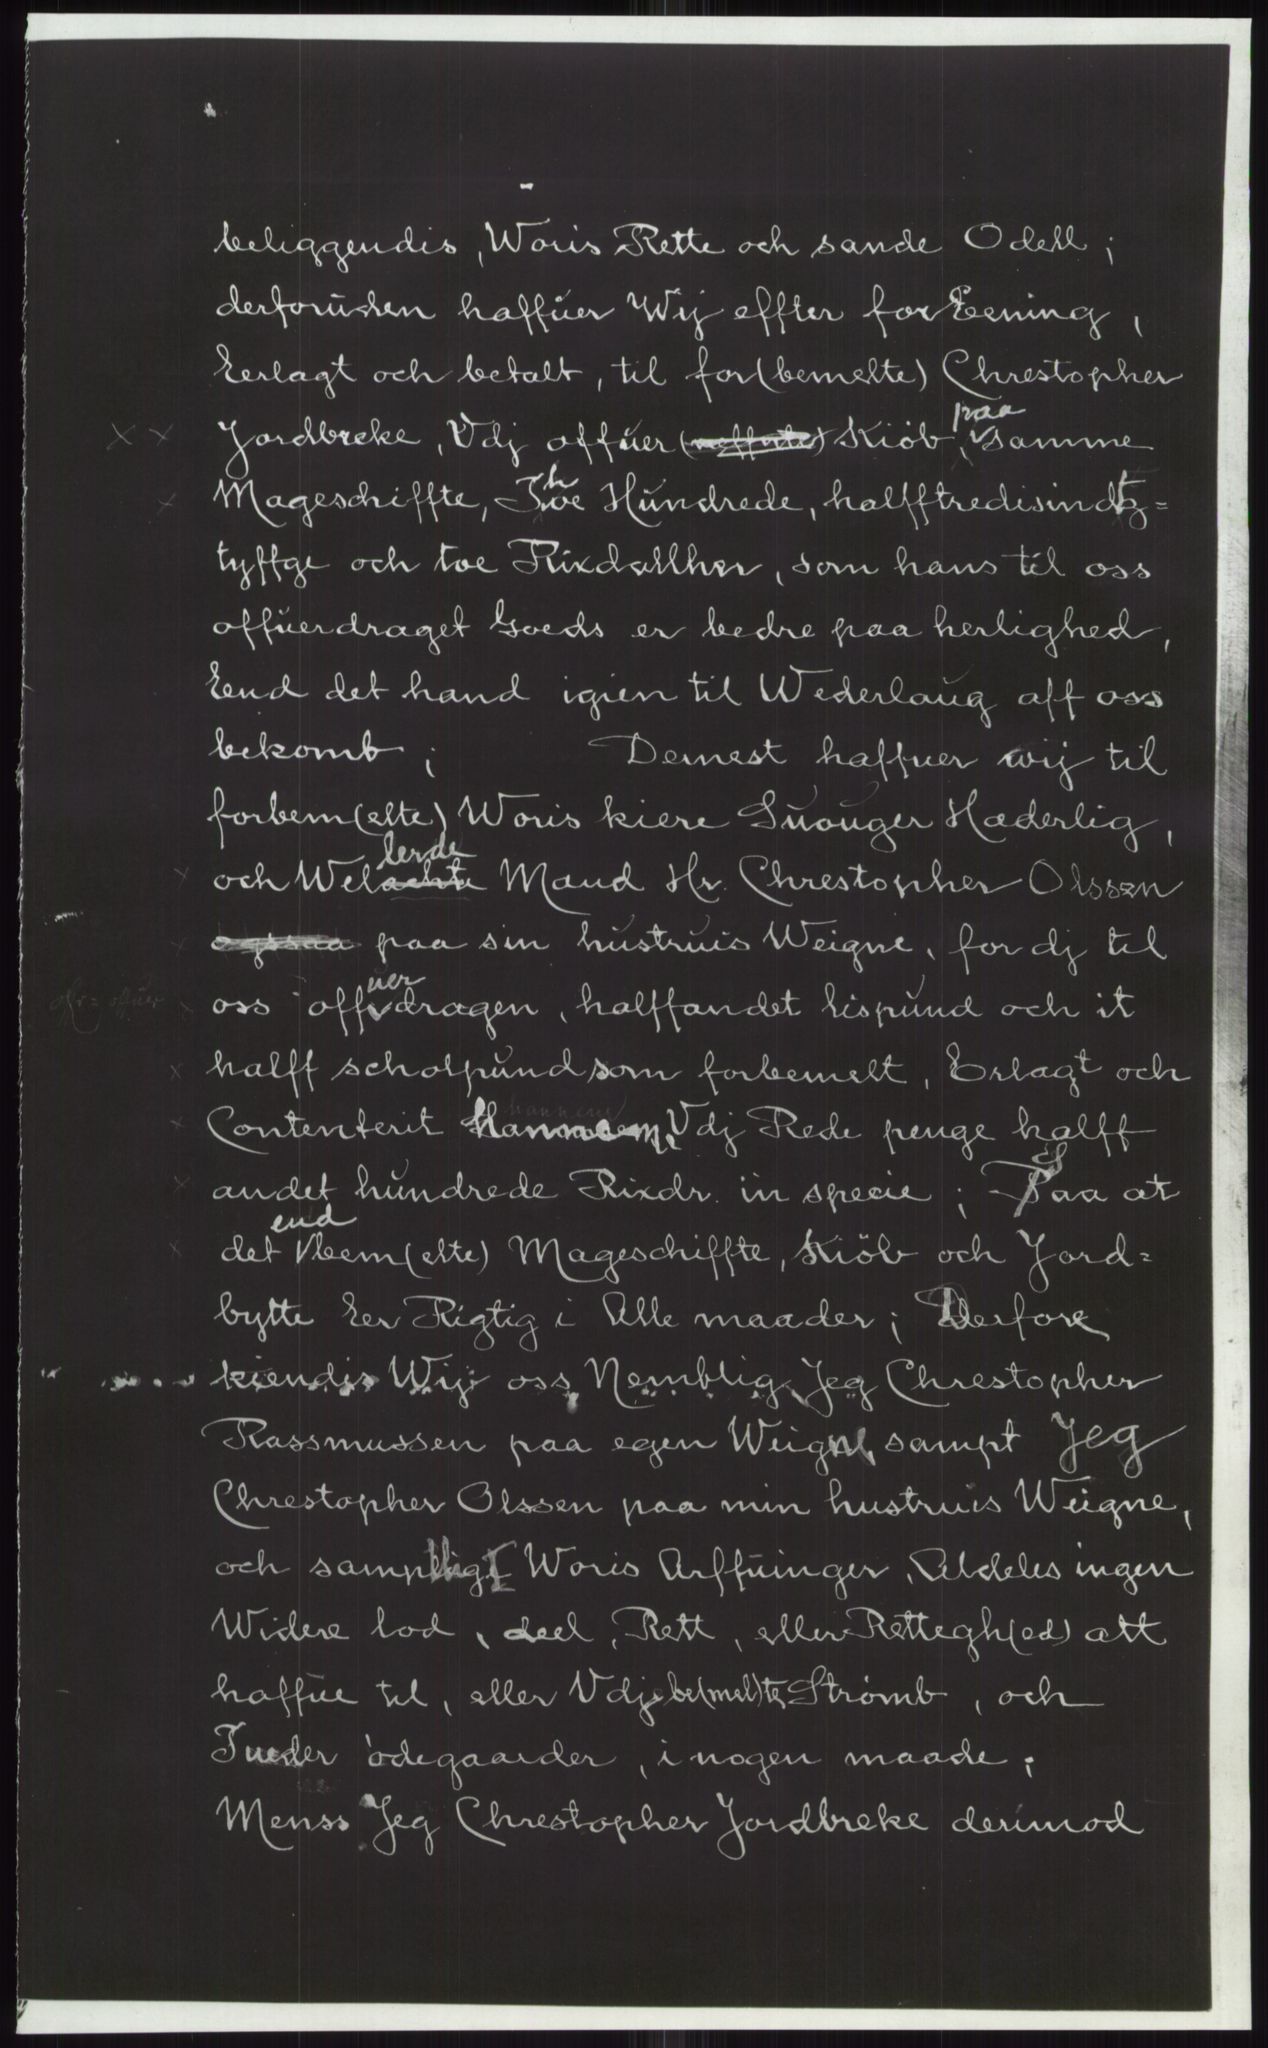 beliggendis, Woris Rette och sande Odell;
derforuden haffuer Wij effter for Eening,
Eerlagt och betalt, til for(bemelte) Chrestopher
Jordbreke, Vdj offuer Kiöb, paa samme
Mageschiffte, Thoe Hundrede, halfftredisindtz=
tyffge och toe Rixdallher, som hans til oss
offuerdraget Goeds er bedre paa herlighed,
Eend det hand igien til Wederlaug aff oss
bekomb; Dernest haffuer wij til
forbem(elte) Woris kiere Suouger Hæderlig,
och Wellerde Mand Hr. Chrestopher Olssen
paa sin hustruis Weigne, for dj til
ofr = offuer
oss offuerdragen, halffandet lispund och it
halff scholpund som forbemelt, Erlagt och
Contenterit hannem, Vdj Rede penge halff
andet hundrede Rixdr. in specie; Saa at
det endbem(elte) Mageschiffte, Kiöb och Jord=
bytte Eer Rigtig i Alle maader; Derfore
kiendis Wij oss Nemblig Jeg Chrestopher
Rassmussen paa egen Weigne sampt Jeg
Chrestopher Olssen paa min hustruis Weigne,
och samptlige Woris Arffuinger, Aldeles ingen
Widere lod, deel, Rett, eller Rettegh(ed) att
haffue til, eller Vdj be(mel)te Strømb, och
Tueder ödegaarder, i nogen maade;
Menss Jeg Chrestopher Jordbreke derimod